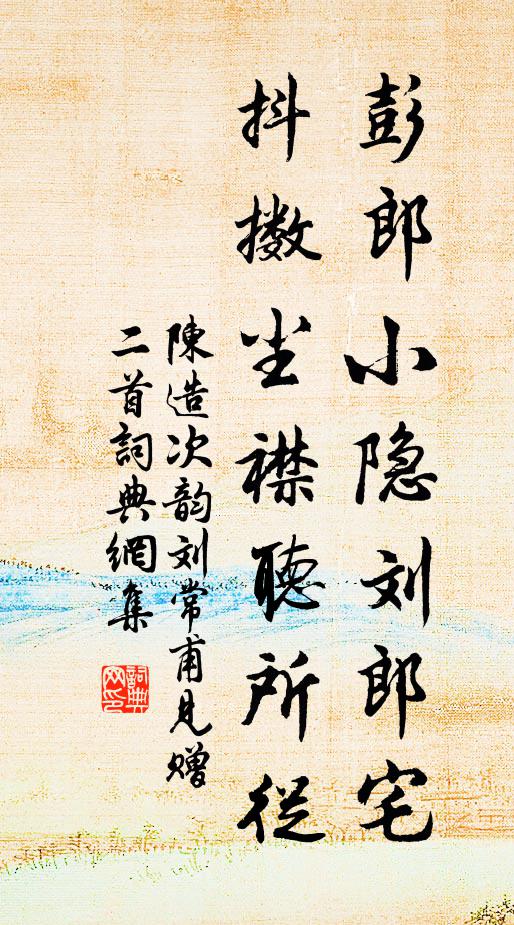 彭郎小隐刘郎宅
抖擞尘襟聽所從
陳造次韵刘常甫見赠
二首詞典網集
詞典网印